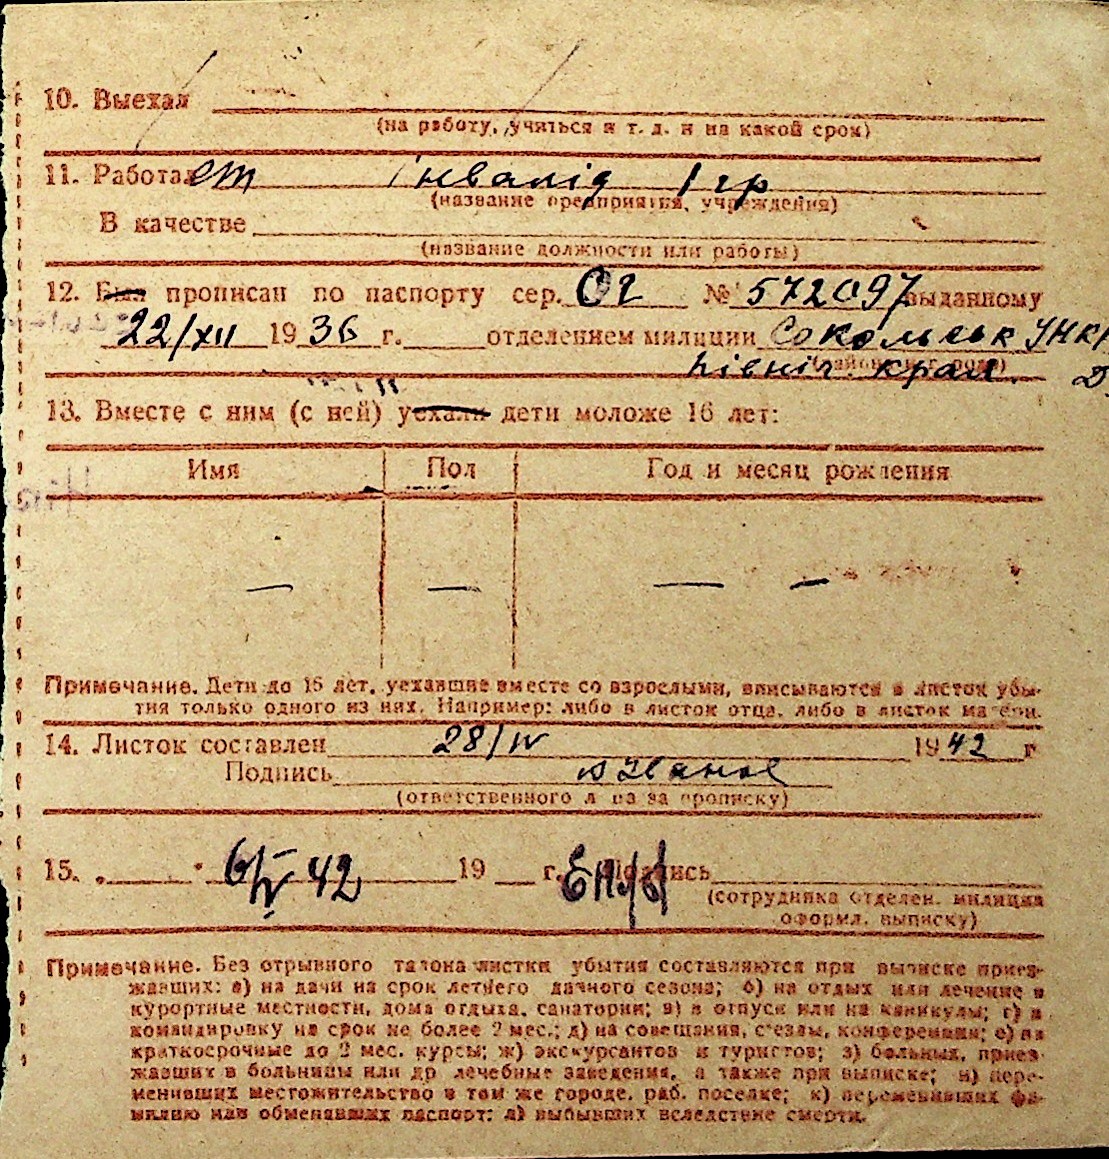 10. Выехал
(на работу, учиться и т. д. и на какой срок)
11. Работает інвалід І гр
(название предприятия, учреждения)
В качестве
(название должности или работы)
12. Был прописан по паспорту сер. ОГ № 572097 выданному
22/XII 1936 г. отделением милиции Сокольськ УНКВ
північ. края.
13. Вместе с ним (с ней) уехали дети моложе 16 лет:
Имя Пол Год и месяц рождения
— — — —
Примечание. Дети до 16 лет, уехавшие вместе со взрослыми, вписываются в листок убы-
тия только одного из них. Например: либо в листок отца, либо в листок матери.
14. Листок составлен 28/IV 1942 г
Подпись Иванов
(ответственного лица за прописку)
15. 6/V 42 19 г. Подпись
(сотрудника отделен. милиции
оформл. выписку)
Примечание. Без отрывного талона листки убытия составляются при выписке приез-
жавших: а) на дачи на срок летнего дачного сезона; б) на отдых или лечение в
курортные местности, дома отдыха, санатории; в) в отпуск или на каникулы; г) в
командировку на срок не более 2 мес.; д) на совещания, съезды, конференции; е) на
краткосрочные до 2 мес. курсы; ж) экскурсантов и туристов; з) больных, приез-
жавших в больницы или др лечебные заведения, а также при выписке; и) пере-
менивших местожительство в том же городе, раб. поселке; к) переменивших фа-
милию или обменявших паспорт; л) выбывших вследствие смерти.